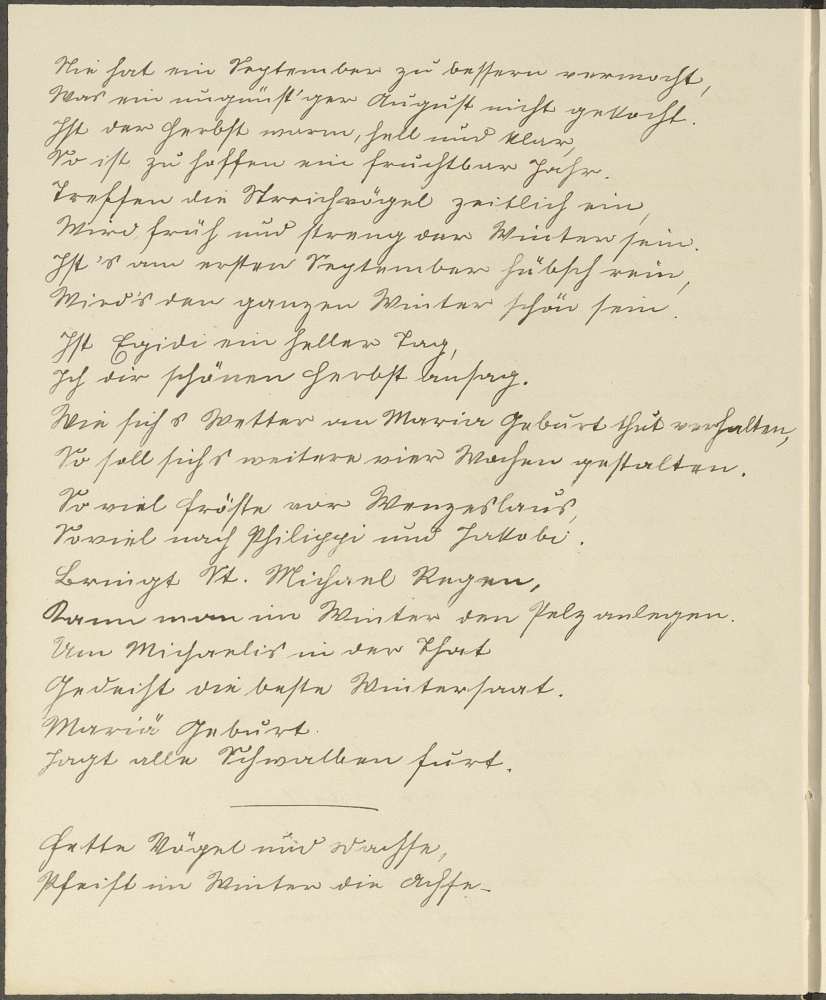 Nie hat ein September zu bessern vermocht,
Was ein ungünst'ger August nicht gekocht.
Ist der Herbst warm, hell und klar,
So ist zu hoffen ein fruchtbar Jahr.
Treffen die Streichvögel zeitlich ein,
Wird früh und streng der Winter sein.
Ist's am ersten September hübsch rein,
Wird's den ganzen Winter schön sein.
Ist Egidi ein heller Tag,
Ich dir schönen Herbst ansag.
Wie sich s Wetter an Maria Geburt thut verhalten,
So soll sichs weitere vier Wochen gestalten.
So viel Fröste vor Wenzeslaus,
Soviel nach Philippi und Jakobi.
Bringt St. Michael Regen,
Kann man im Winter den Pelz anlegen.
Um Michaelis in der That
Gedeiht die beste Wintersaat.
Mariä Geburt
Jagt alle Schwalben furt.
Fette Vögel und Dachse,
Pfeift im Winter die Achse.